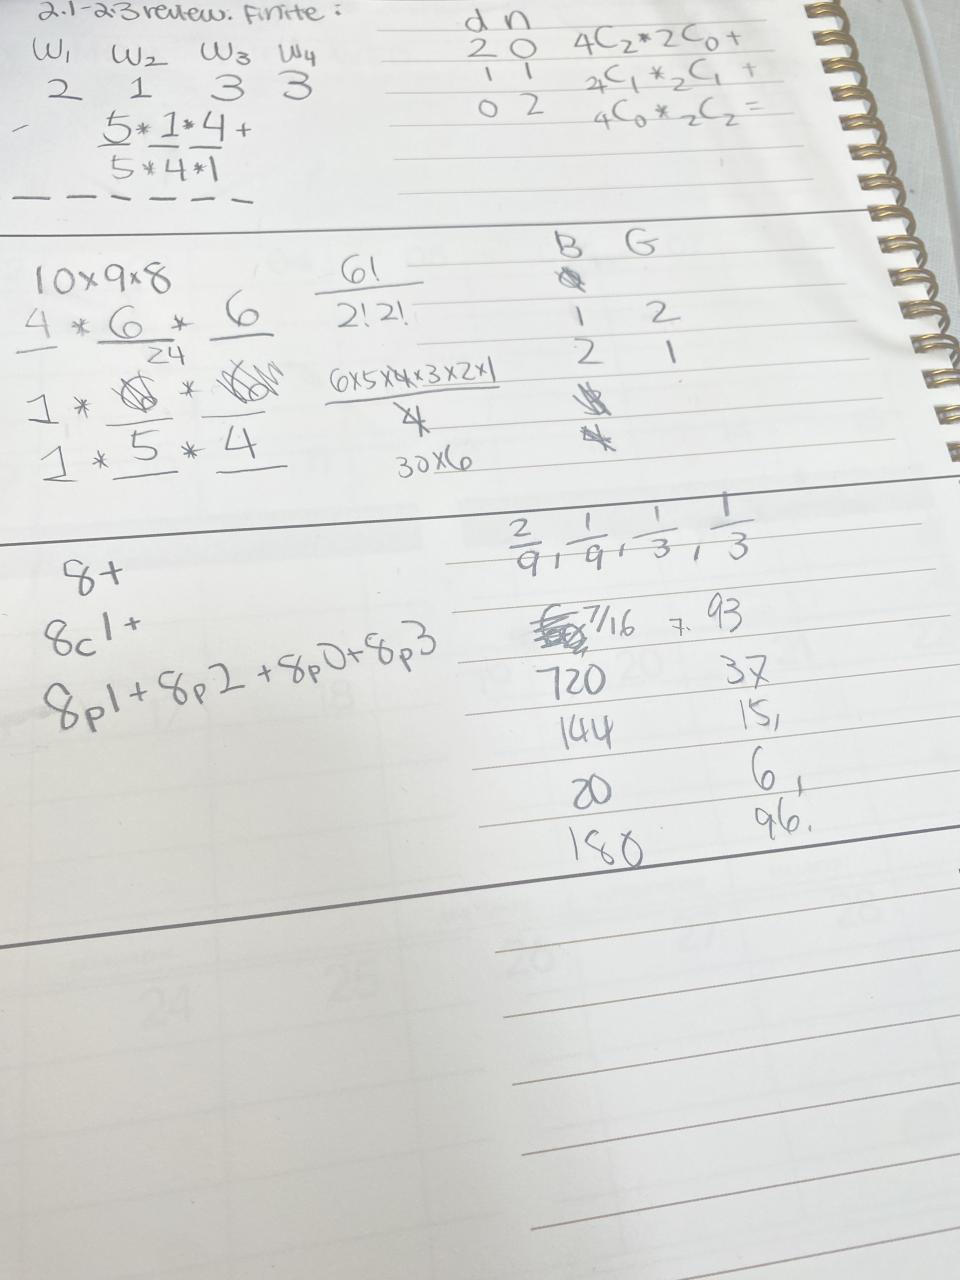 2.1-2.3 review. Finite:
W1 W2 W3 W4
2 1 3 3
5 * 1 * 4 +
5 * 4 * 1
d n
2 0 4C2 * 2C0 +
1 1 4C1 * 2C1 +
0 2 4C0 * 2C2 =
10×9×8
4 * 6 * 6
24
1 * *
1 * 5 * 4
6!
2! 2!
6×5×4×3×2×1
4
30×6
B G
1 2
2 1
8+
8C1+
8P1+ 8P2 +8P0+8P3
2/9, 1/9, 1/3, 1/3
7/16 7. 93
720 37
144 15,
20 6,
180 96.
24 25 26 27 28